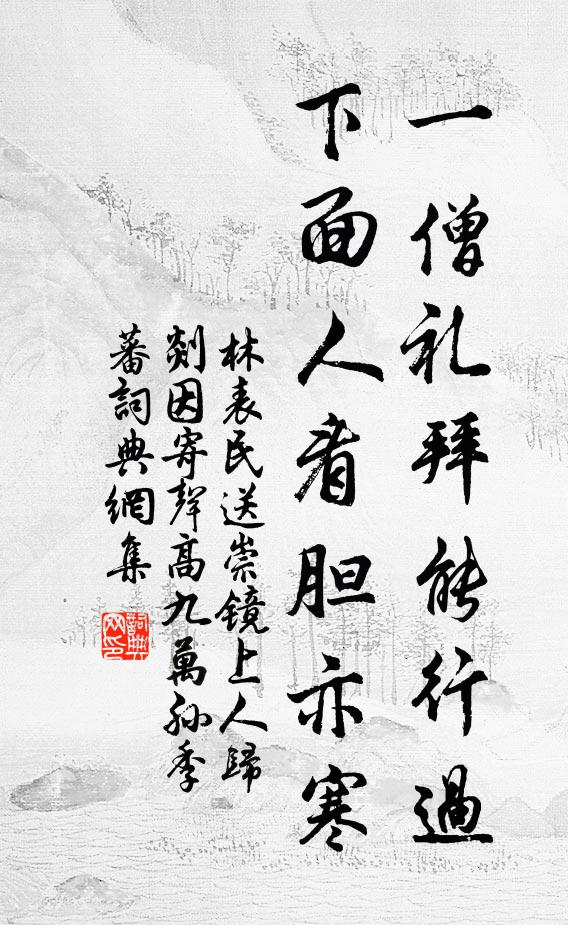 一僧礼拜能行過
下面人看胆亦寒
林表民送崇镜上人歸
剡因寄聲高九萬孙季
蕃詞典網集
詞典网印